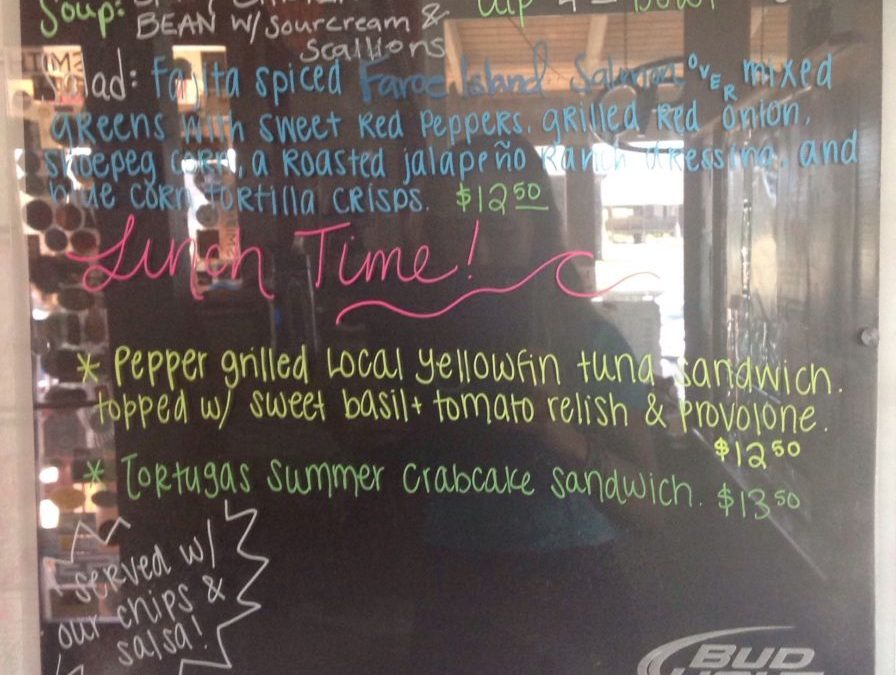 Soup:
BEAN W/ Sourcream &
Scallions
Salad: Fajita spiced Faroe Island Salmon OVER mixed
greens with sweet Red Peppers, grilled Red Onion,
shoepeg corn, a Roasted jalapeño Ranch dressing, and
blue corn tortilla crisps. $12 50
Lunch Time!
* Pepper grilled Local Yellowfin tuna sandwich.
topped w/ sweet basil + tomato relish & provolone.
$12 50
* Tortugas Summer Crabcake sandwich. $13 50
served w/
our chips &
salsa!
BUD
LIGHT